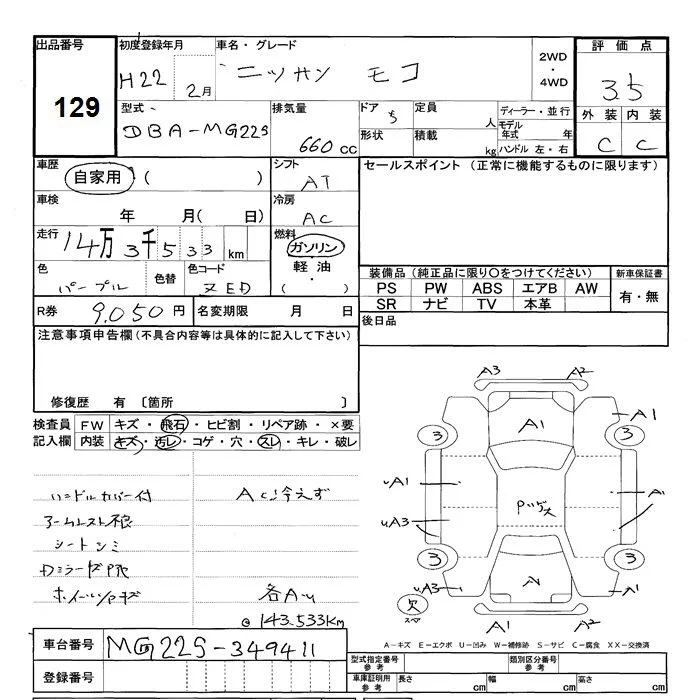 出品番号
129
初度登録年月
H22 2月
車名・グレード
ニッサン モコ
2WD
・
4WD
評価点
3.5
外装 内装
C C
型式
DBA-MG22S
排気量
660 cc
ドア 5
形状
定員 人
積載 kg
ディーラー・並行
モデル年式 年
ハンドル 左・右
車歴
自家用 ( )
シフト
AT
車検
年 月( 日)
冷房
AC
走行
14万3千533 km
燃料
ガソリン
軽油
( )
色
パープル
色替
色コード
ZED
R券 9,050円
名変期限 月 日
セールスポイント (正常に機能するものに限ります)
装備品(純正品に限り○をつけてください)
PS PW ABS エアB AW
SR ナビ TV 本革
新車保証書
有・無
後日品
注意事項申告欄(不具合内容等は具体的に記入して下さい)
修復歴 有 〔箇所 〕
検査員 FW キズ・飛石・ヒビ割・リペア跡・×要
記入欄 内装 キズ・汚レ・コゲ・穴・スレ・キレ・破レ
ハンドルカバー付
アームレスト
シートシミ
Dミラー
ホイール
AC冷えず
各AU
@ 143,533Km
A3 A2
A1
A1
3 3
uA1
A1
uA3
3 3
uA3
A1
欠
スペア
A1 A2
A-キズ E-エクボ U-凹み W-補修跡 S-サビ C-腐食 XX-交換済
車台番号
MG22S-349411
登録番号
型式指定番号
参考
類別区分番号
参考
車庫証明用
参考
長さ cm
幅 cm
高さ cm